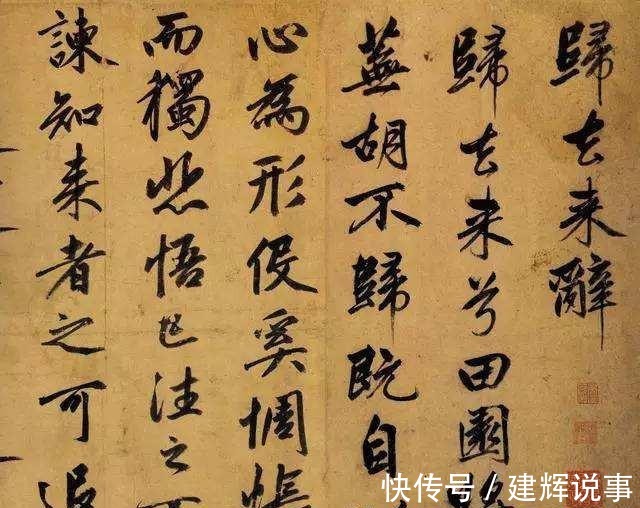 歸去来辭
歸去来兮田園
蕪胡不歸既自
心為形役奚惆悵
而獨悲悟已往之
諫知来者之可追
快传号 / 建辉说事